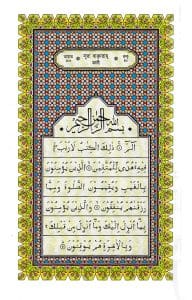 بِسْمِ اللهِ الرَّحْمٰنِ الرَّحِيْمِ
الٓمّٓ ۝ ذٰلِكَ الْكِتٰبُ لَا رَيْبَ ۛ
فِيْهِ ۛ هُدًى لِّلْمُتَّقِيْنَ ۝ الَّذِيْنَ يُؤْمِنُوْنَ
بِالْغَيْبِ وَيُقِيْمُوْنَ الصَّلٰوةَ وَمِمَّا
رَزَقْنٰهُمْ يُنْفِقُوْنَ ۝ وَالَّذِيْنَ يُؤْمِنُوْنَ
بِمَآ اُنْزِلَ اِلَيْكَ وَمَآ اُنْزِلَ مِنْ قَبْلِكَ ۚ
وَبِالْاٰخِرَةِ هُمْ يُوْقِنُوْنَ ۝